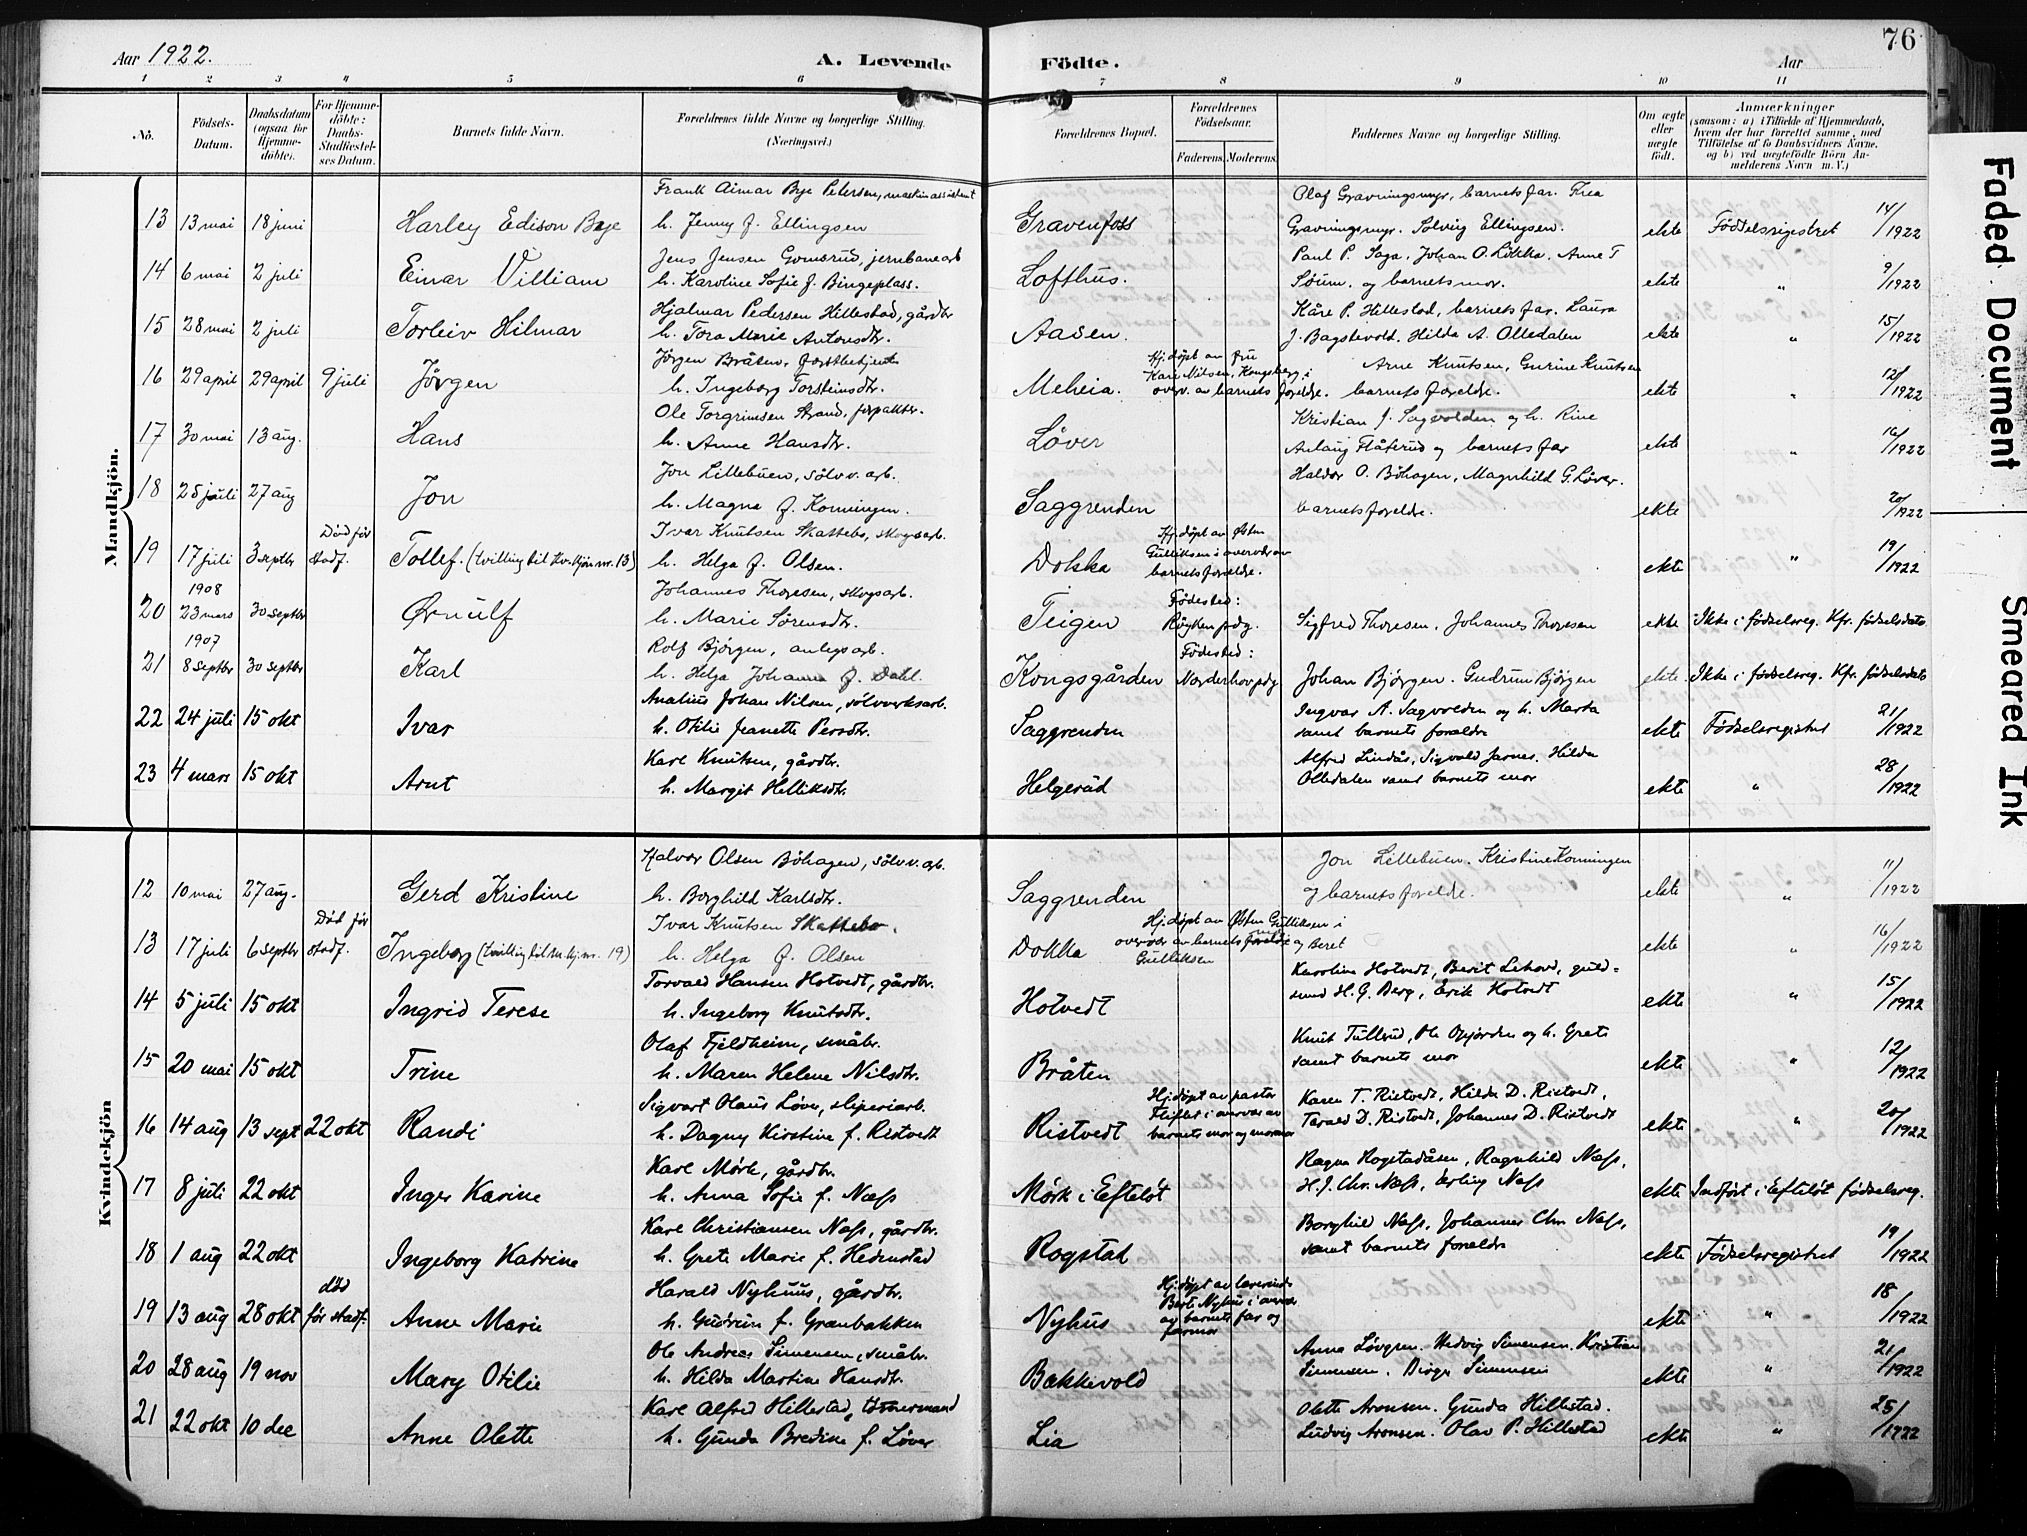 Aar 1922.
A. Levende Födte.
Aar
76
1 2 3 4 5 6 7 8 9 10 11
No.
Födsels-Datum.
Daabsdatum (ogsaa for Hjemme-döbte).
For Hjemme-döbte: Daabs-Stadfæstel-ses Datum.
Barnets fulde Navn.
Forældrenes fulde Navne og borgerlige Stilling. (Næringsvei.)
Forældrenes Bopæl.
Forældrenes Födselsaar.
Faderens. Moderens.
Faddernes Navne og borgerlige Stilling.
Om ægte eller uægte födt.
Anmærkninger
(saasom: a) i Tilfælde af Hjemmedaab,
hvem der har forrettet samme, med
Tilföielse af to Daabsvidners Navne,
og b) ved uægtefödte Börn An-
melderens Navn m. V.)
Mandkjön.
Frank Aimar Bye Petersen, maskinassistent Olaf Gravningsmyr, barnets far. Thea
13 13 mai 18 juni Harley Edison Bye h. Jenny f. Ellingsen Gravenfoss Gravningsmyr. Solveig Ellingsen. ekte Fødselsregistret 14/1922
Jens Jensen Gomsrud, jernbanearb Paul P. Saga, Johan O. Løkka. Anne T
14 6 mai 2 juli Einar Villiam h. Karoline Sofie f. Bingeplass. Lofthus. Søum. og barnets mor. ekte " 9/1922
Hjalmar Pedersen Hillestad, gårdbr Kåre P. Hillestad, barnets far. Laura
15 28 mai 2 juli Torleiv Hilmar h. Tora Marie Antonsdtr. Aasen. J. Bagstevold. Hilda A. Olledalen ekte " 15/1922
Jørgen Bråten, forstbetjent Hj. døpt av fru Arne Knutsen, Gurine Knutsen
16 29 april 29 april 9 juli Jørgen h. Ingeborg Torsteinsdtr. Meheia. Kari Nilsen, Kongsberg, i overv. av barnets foreldre. barnets foreldre. ekte " 12/1922
Ole Torgrimsen Strand, forpakter. Kristian J. Sagvolden og h. Rine
17 30 mai 13 aug. Hans h. Anne Hansdtr. Løver Aslaug Flåterud og barnets far ekte " 16/1922
Jon Lillebuen, sølvv. arb. Haldor O. Böhagen, Magnhild G. Løver.
18 25 juli 27 aug Jon h. Magna f. Korningen. Saggrenden barnets foreldre. ekte 20/1922
Død før Ivar Knutsen Skattebo, skogsarb. Hj. døpt av Østen
19 17 juli 3 septbr stadf. Tollef. (tvilling til Kv.kjøn nr. 13) h. Helga f. Olsen. Dokka Gulliksen i overvær av barnets foreldre. ekte " 19/1922
1908 Johannes Thoresen, skogsarb. Fødested:
20 23 mars 30 septbr Ørnulf h. Marie Sørensdtr. Teigen Røyken pdg. Sigfred Thoresen, Johannes Thoresen ekte Ikke i fødselsreg. Kfr. fødselsdato
1907 Rolf Bjørgen, anlegsarb. Fødested:
21 8 septbr 30 septbr Karl h. Helga Johanne f. Dahl. Kongsgården Norderhov pdg Johan Bjørgen. Gudrun Bjørgen ekte Ikke i fødselsreg. Kfr. fødselsdato
Anatius Johan Nilsen, sølvverksarb. Ingvar A. Sagvolden og h. Marta
22 24 juli 15 okt Ivar h. Otilie Jeanette Persdtr. Saggrenden samt barnets foreldre ekte Fødselsregistret 21/1922
Karl Knutsen, gårdbr. Alfred Lindås, Sigvald Jarnes, Hilda
23 4 mars 15 okt Arnt h. Margit Helliksdtr. Helgeråd Olledalen samt barnets mor ekte " 28/1922
Kvindekjön
Halvor Olsen Böhagen, sölvv. arb. Jon Lillebuen. Kristine Korningen
12 10 mai 27 aug. Gerd Kristine h. Borghild Karlsdtr. Saggrenden og barnets foreldre. ekte " 11/1922
Død før Ivar Knutsen Skattebo. Hj. døpt av Østen Gulliksen i
13 17 juli 6 septbr stadf. Ingeborg (tvilling til M.kj. nr. 19) h. Helga f. Olsen Dokka overvær av barnets og Beret Gulliksen ekte " 16/1922
Torvald Hansen Hotvedt, gårdbr. Karoline Hotvedt, Berit Lehovd, guld-
14 5 juli 15 okt Ingrid Terese h. Ingeborg Knutsdtr. Hotvedt smed H. G. Berg, Erik Hotvedt ekte " 15/1922
Olaf Fjeldheim, småbr. Knut Tullrud, Ole Opjorden og h. Grete
15 20 mai 15 okt Trine h. Maren Helene Nilsdtr. Bråten samt barnets mor ekte " 12/1922
Sigvart Olaus Løver, sliperiarb. Hj. døpt av pastor Karen T. Ristvedt, Hilda D. Ristvedt,
16 14 aug 13 sept 22 okt Randi h. Dagny Kirstine f. Ristvedt Ristvedt Fliflet i overvær av barnets mor og mormor Tarald D. Ristvedt, Johannes D. Ristvedt ekte " 20/1922
Karl Mørk, gårdbr. Ragna Rogstadåsen, Ragnhild Næss,
17 8 juli 22 okt Inger Karine h. Anna Sofie f. Næss Mørk i Efteløt H. J. Chr. Næss, Erling Næss ekte Indført i Efteløt fødselsreg.
Karl Christiansen Næss, gårdbr. Borghild Næss, Johannes Chr. Næss,
18 1 aug 22 okt Ingeborg Katrine h. Grete Marie f. Hedenstad Rogstad samt barnets foreldre ekte Fødselsregistret 19/1922
død Harald Nyhuus, gårdbr. Hj. døpt av lærerinde
19 13 aug 28 okt før stadf. Anne Marie h. Gudrun f. Granbakken Nyhus Berte Nyhus i overvær av barnets far og farmor ekte " 18/1922
Ole Andreas Simensen, småbr. Anna Løvgren. Hedvig Simensen. Kristian
20 28 aug 19 nov Mary Otilie h. Hilda Martine Hansdtr. Bækkevold Simensen. Birger Simensen ekte " 21/1922
Karl Alfred Hillestad, tømmermand Olette Aronsen. Gunda Hillestad.
21 22 okt 10 dec Anne Olette h. Gunda Bredine f. Løver Lia Ludvig Aronsen. Olav P. Hillestad ekte " 25/1922
Faded Document
Smeared Ink